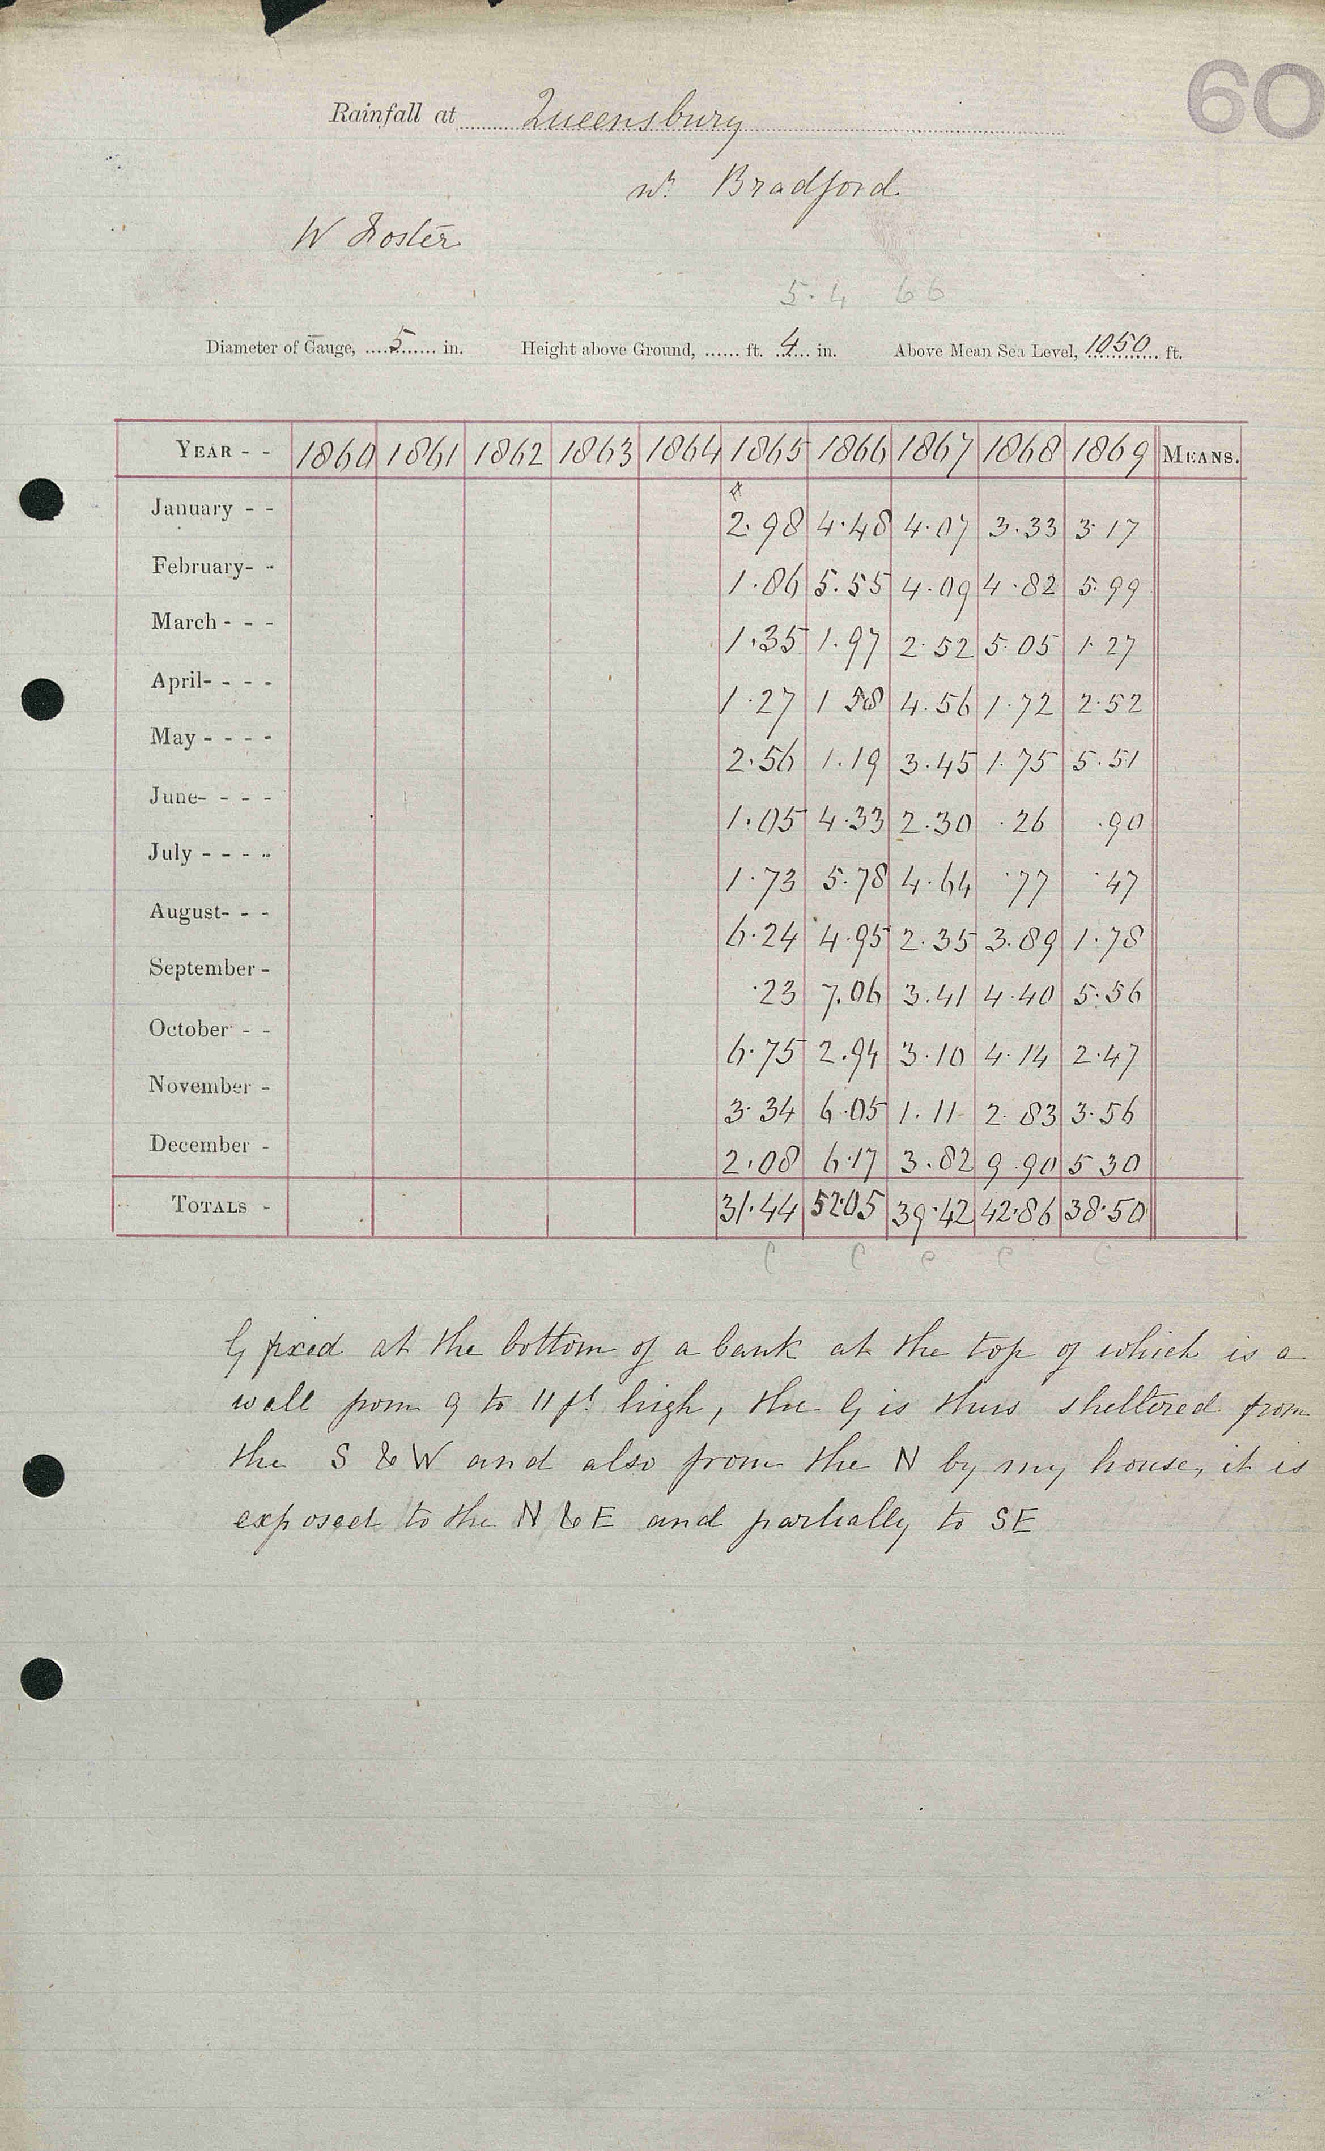 60
Rainfall at Queensbury
nr Bradford
W Foster
5.4 66
Diameter of Gauge, 5 in. Height above Ground, ft. 4 in. Above Mean Sea Level, 1050 ft.
YEAR - - 1860 1861 1862 1863 1864 1865 1866 1867 1868 1869 MEANS.
January - - 2.98 4.48 4.07 3.33 3.17
February- - 1.86 5.55 4.09 4.82 5.99
March - - - 1.35 1.97 2.52 5.05 1.27
April- - - - 1.27 1 58 4.56 1.72 2.52
May - - - - 2.56 1.19 3.45 1.75 5.51
June- - - - 1.05 4.33 2.30 .26 .90
July - - - - 1.73 5.78 4.64 .77 .47
August- - - 6.24 4.95 2.35 3.89 1.78
September - .23 7.06 3.41 4.40 5.56
October - - 6.75 2.94 3.10 4.14 2.47
November - 3.34 6.05 1.11 2.83 3.56
December - 2.08 6.17 3.82 9.90 5 30
TOTALS - 31.44 52.05 39.42 42.86 38.50
C C C C C
G fixed at the bottom of a bank at the top of which is a
wall from 9 to 11 ft high, the G is thus sheltered from
the S & W and also from the N by my house, it is
exposed to the N & E and partially to SE